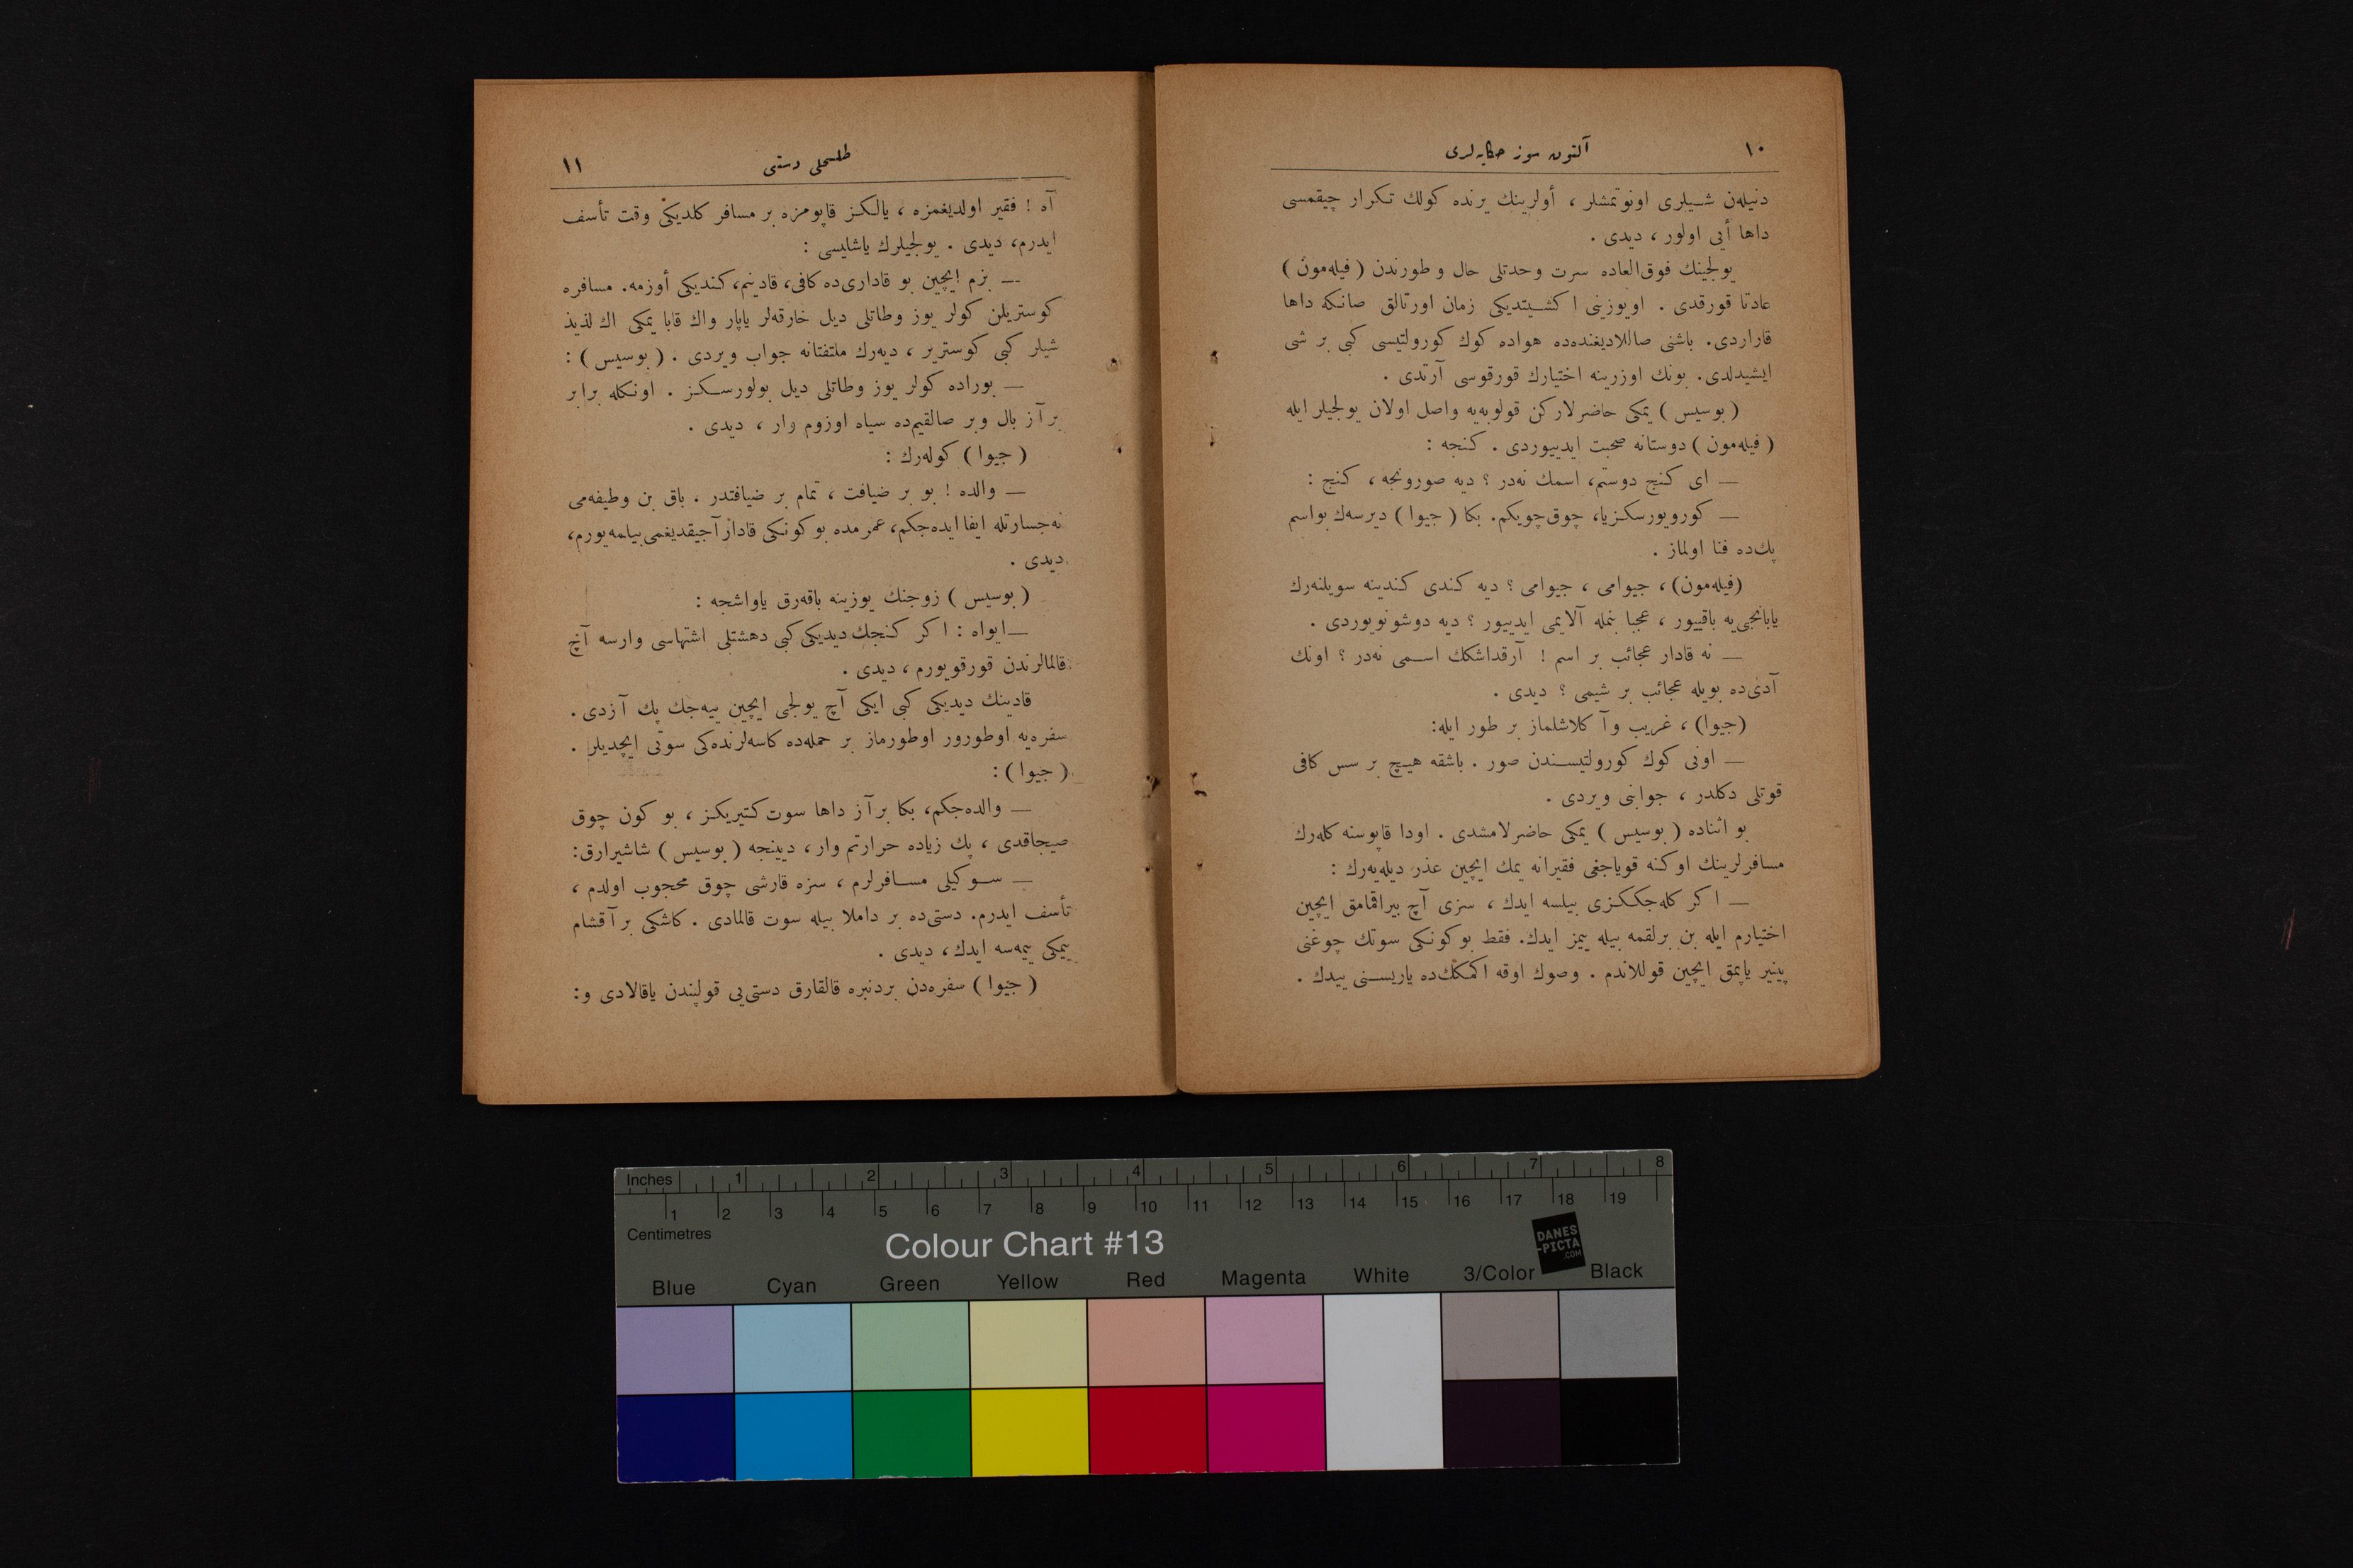 ١٠
آلتون سوز حكايه‌لرى
دنيله‌ن شيلرى اونوتمشلر ، أولرينك يرنده كولك تكرار چيقمسى
داها أيى اولور ، ديدى .
يولجينك فوق‌العاده سرت وحدتلى حال و طورندن ( فيله‌مون )
عادتا قورقدى . اويوزينى اكشيتديكى زمان اورتالق صانكه داها
قاراردى. باشنى صاللاديغنده‌ده هواده كوك كورولتيسى كبى بر شى
ايشيدلدى. بونك اوزرينه اختيارك قورقوسى آرتدى .
( بوسيس ) يمكى حاضرلاركن قولوبه‌يه واصل اولان يولجيلر ايله
( فيله‌مون ) دوستانه صحبت ايدييوردى . كنجه :
— اى كنج دوستم، اسمك نه‌در ؟ ديه صورونجه ، كنج :
— كورويورسكزيا، چوق‌چويكم. بكا ( جيوا ) ديرسه‌ك بواسم
پك‌ده فنا اولماز .
(فيله‌مون) ، جيوامى ، جيوامى ؟ ديه كندى كندينه سويلنه‌رك
يابانجى‌يه باقييور ، عجبا بنمله آلايمى ايدييور ؟ ديه دوشونويوردى .
— نه قادار عجائب بر اسم ! آرقداشكك اسمى نه‌در ؟ اونك
آدى‌ده بويله عجائب بر شيمى ؟ ديدى .
(جيوا) ، غريب وآكلاشلماز بر طور ايله:
— اونى كوك كورولتيسندن صور . باشقه هيچ بر سس كافى
قوتلى دكلدر ، جوابنى ويردى .
بو اثناده ( بوسيس ) يمكى حاضرلامشدى . اودا قاپوسنه كله‌رك
مسافرلرينك اوكنه قوياجغى فقيرانه يمك ايچين عذر ديله‌يه‌رك :
— اكر كله‌جككزى بيلسه ايدك ، سزى آچ بيراقمامق ايچين
اختيارم ايله بن برلقمه بيله ييمز ايدك. فقط بوكونكى سوتك چوغنى
پينير ياپمق ايچين قوللاندم . وصوك اوقه اكمكك‌ده ياريسنى ييدك .
طلسملى دستى
١١
آه ! فقير اولديغمزه ، يالكز قاپومزه بر مسافر كلديكى وقت تأسف
ايدرم، ديدى . يولجيلرك ياشليسى :
— بزم ايچين بو قادارى‌ده كافى، قادينم، كنديكى أوزمه. مسافره
كوستريلن كولر يوز وطاتلى ديل خارقه‌لر ياپار واك قابا يمكى اك لذيذ
شيلر كبى كوستريز ، ديه‌رك ملتفتانه جواب ويردى . ( بوسيس ) :
— بوراده كولر يوز وطاتلى ديل بولورسكز . اونكله برابر
بر آز بال وبر صالقيم‌ده سياه اوزوم وار ، ديدى .
( جيوا ) كوله‌رك :
— والده ! بو بر ضيافت ، تمام بر ضيافتدر . باق بن وظيفه‌مى
نه‌جسارتله ايفا ايده‌جكم، عمرمده بوكونكى قادار آجيقديغمى بيلمه‌يورم،
ديدى .
( بوسيس ) زوجنك يوزينه باقه‌رق ياواشجه :
— ايواه : اكر كنجك ديديكى كبى دهشتلى اشتهاسى وارسه آچ
قالمالرندن قورقويورم ، ديدى .
قادينك ديديكى كبى ايكى آچ يولجى ايچين ييه‌جك پك آزدى .
سفره‌يه اوطورور اوطورماز بر حمله‌ده كاسه‌لرنده‌كى سوتى ايچديلر .
( جيوا ) :
— والده‌جكم، بكا بر آز داها سوت كتيريكز ، بو كون چوق
صيجاقدى ، پك زياده حرارتم وار، ديينجه ( بوسيس ) شاشيرارق:
— سوكيلى مسافرلرم ، سزه قارشى چوق محجوب اولدم ،
تأسف ايدرم. دستى‌ده بر داملا بيله سوت قالمادى . كاشكى بر آقشام
ييمكى ييمه‌سه ايدك ، ديدى .
( جيوا ) سفره‌دن بردنبره قالقارق دستى‌يى قولپندن ياقالادى و:
Inches
1 2 3 4 5 6 7 8
1 2 3 4 5 6 7 8 9 10 11 12 13 14 15 16 17 18 19
Centimetres
Colour Chart #13
DANES
-PICTA
.COM
Blue Cyan Green Yellow Red Magenta White 3/Color Black